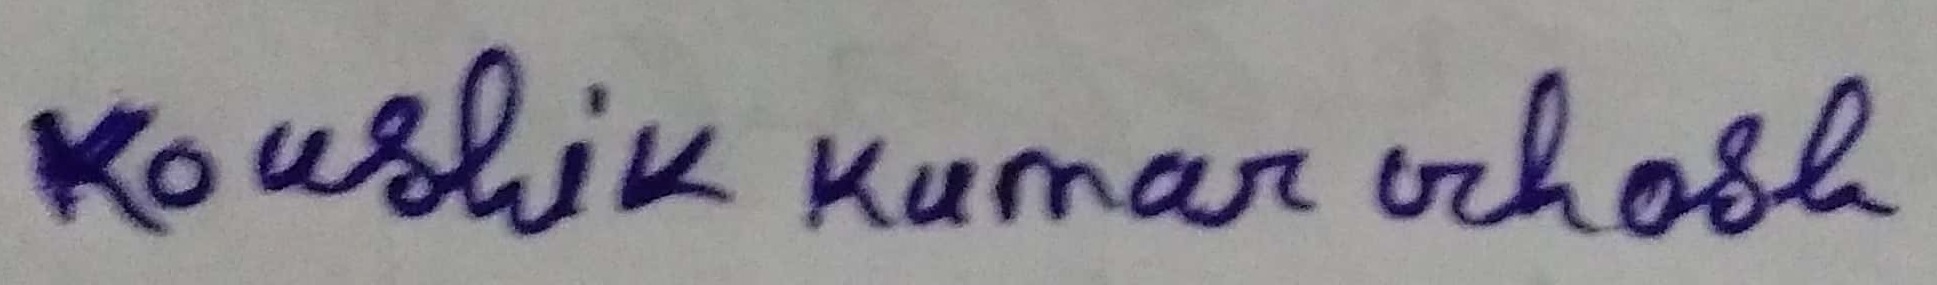 Koushik Kumar Ghosh